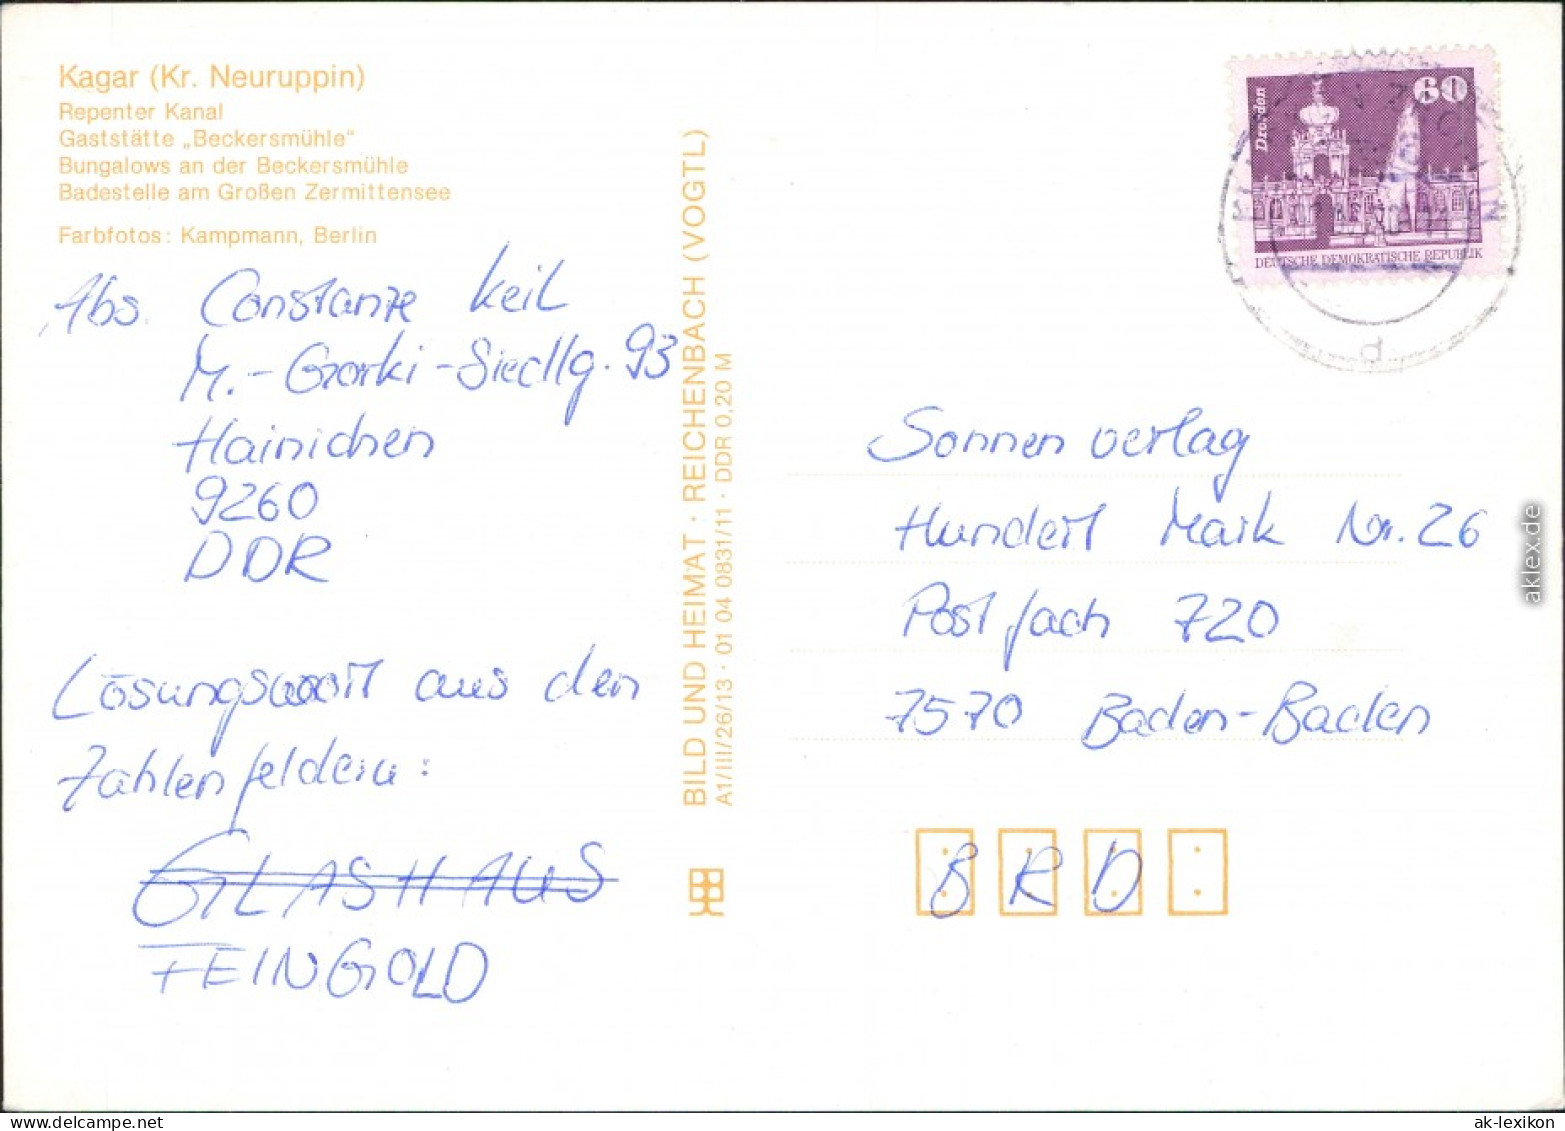 Kagar (Kr. Neuruppin)
Repenter Kanal
Gaststätte „Beckersmühle“
Bungalows an der Beckersmühle
Badestelle am Großen Zermittensee
Farbfotos: Kampmann, Berlin
Abs. Constanze Keil
M.-Gorki-Siedlg. 93
Hainichen
9260
DDR
Lösungswort aus den
Zahlenfeldern:
GLASHAUS
FEINGOLD
BILD UND HEIMAT · REICHENBACH (VOGTL)
A1/III/26/13 · 01 04 0831/11 · DDR 0,20 M
Dresden
60
DEUTSCHE DEMOKRATISCHE REPUBLIK
d
Sonnenverlag
Hundert Mark Nr. 26
Postfach 720
7570 Baden-Baden
BRD
aklex.de
ak-lexikon